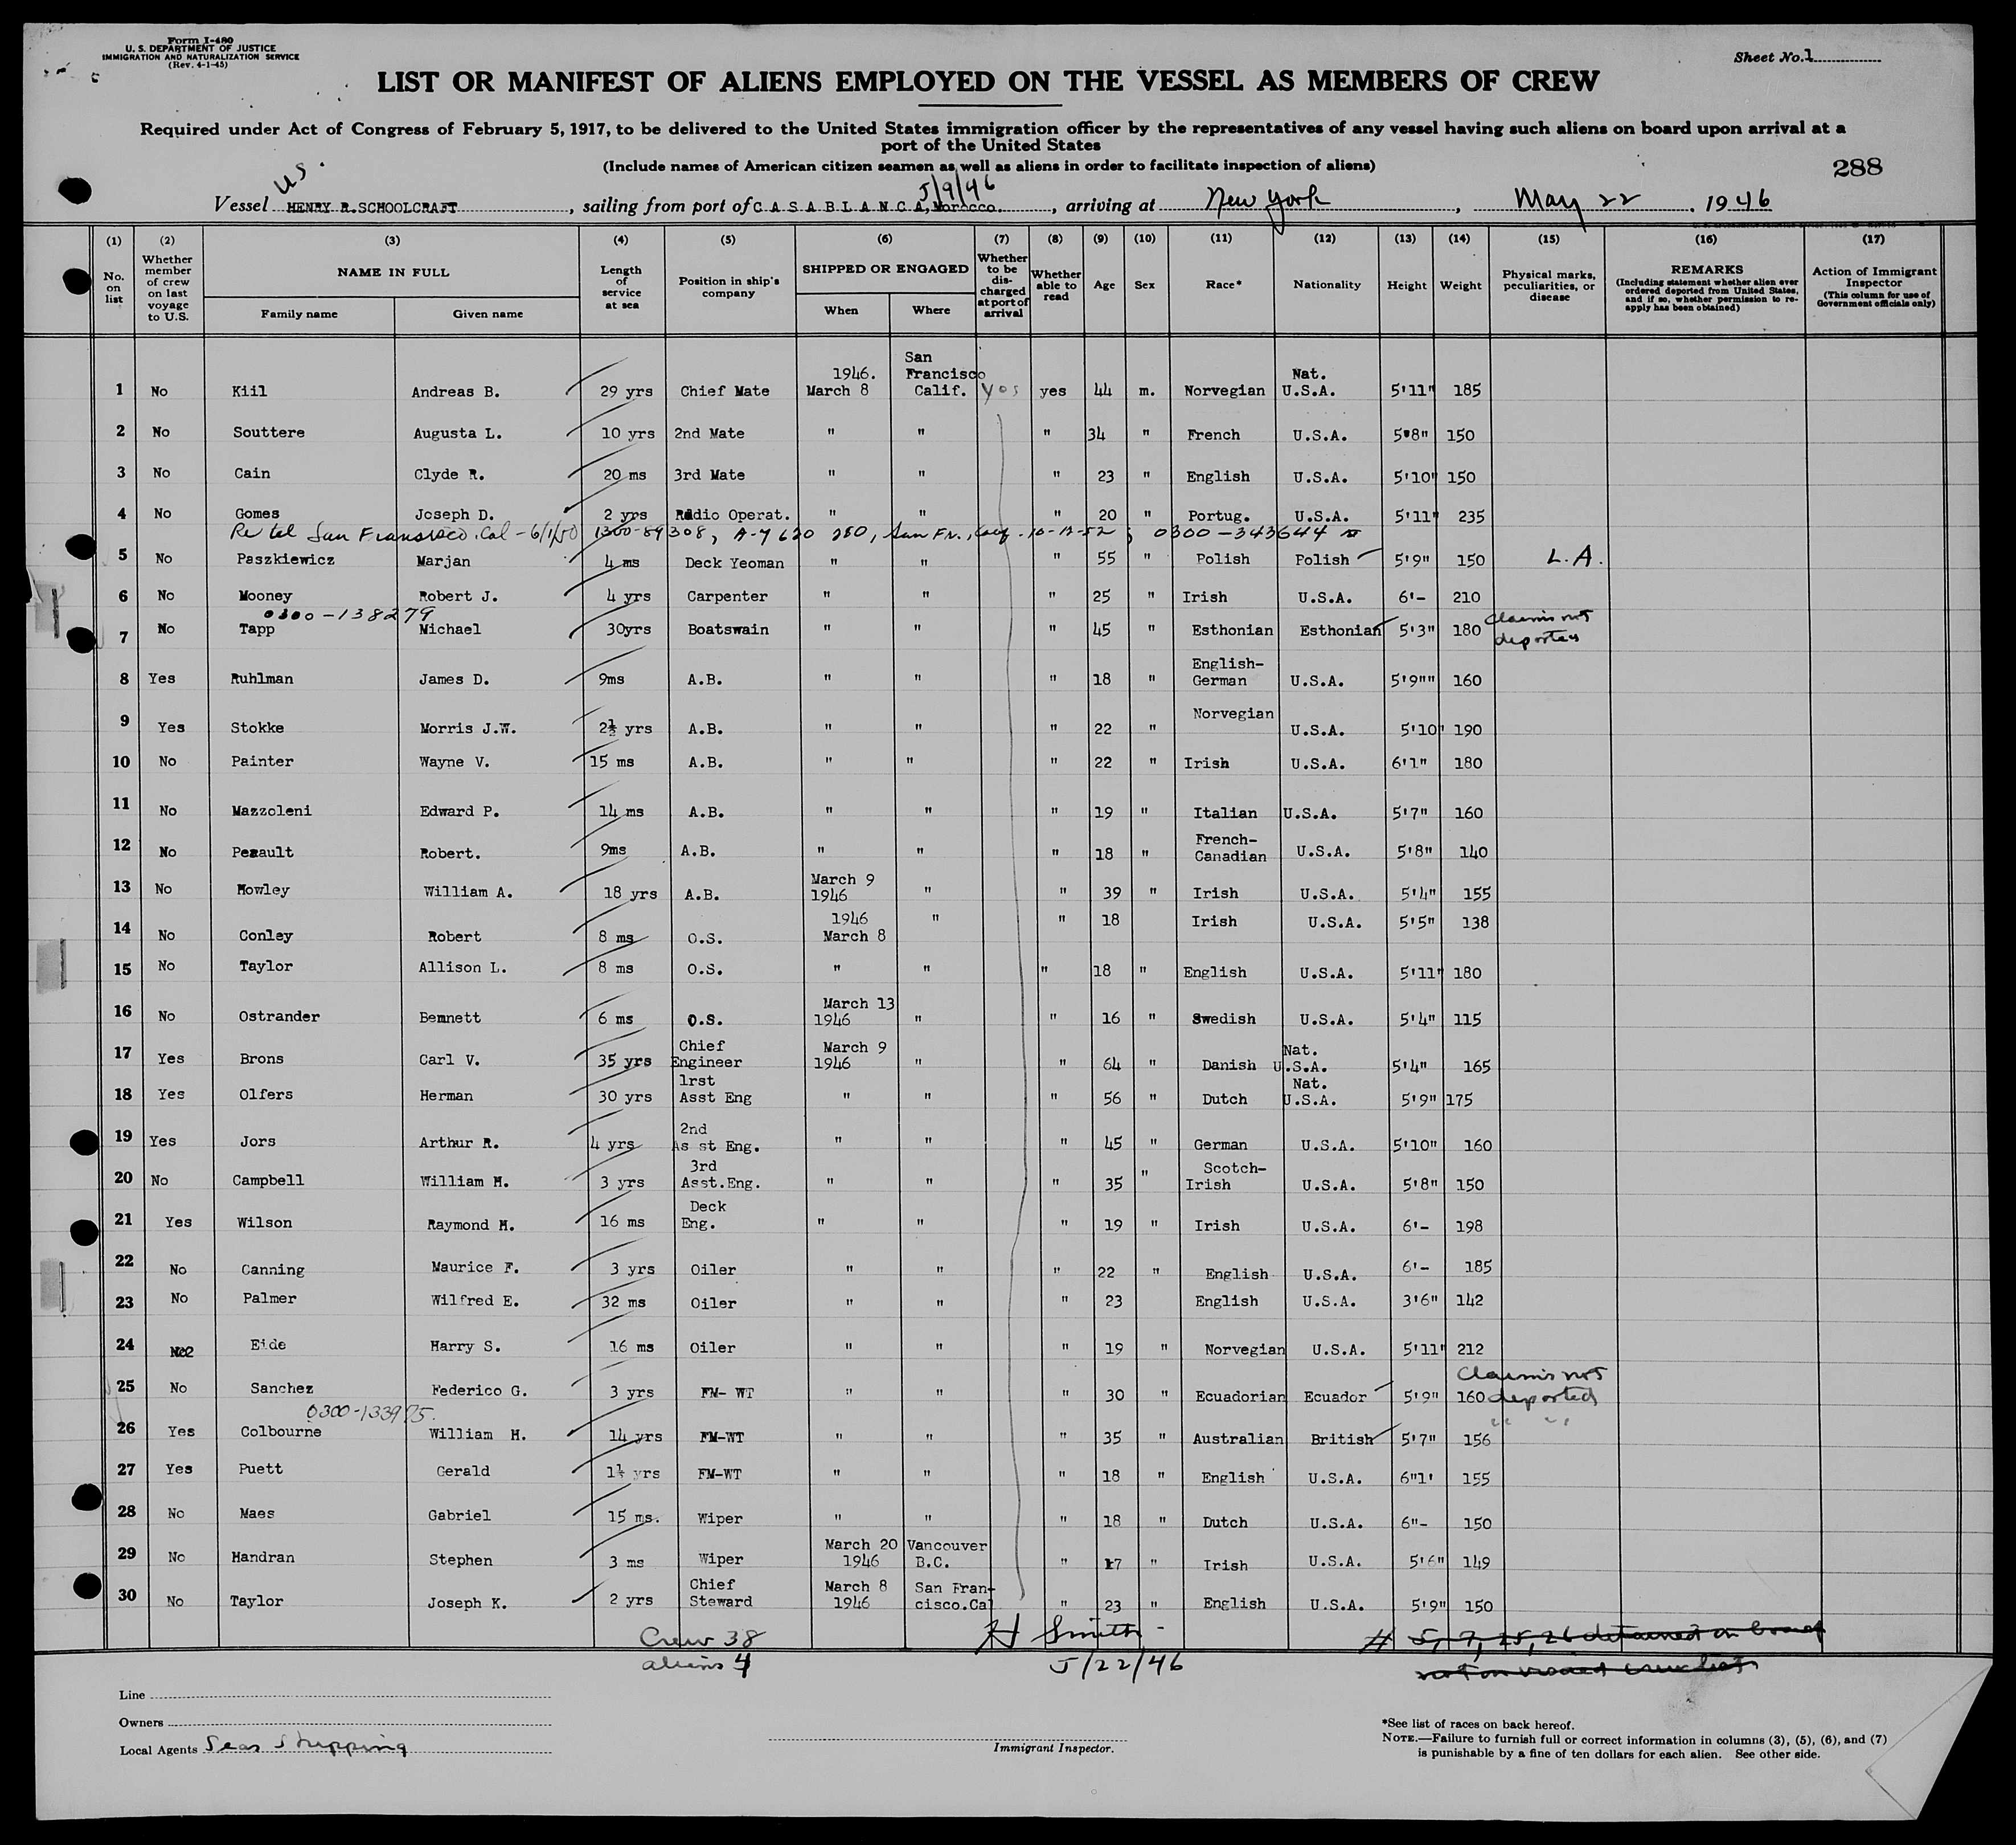 Form I-480
U. S. DEPARTMENT OF JUSTICE
IMMIGRATION AND NATURALIZATION SERVICE
(Rev. 4-1-45)
Sheet No. 1
LIST OR MANIFEST OF ALIENS EMPLOYED ON THE VESSEL AS MEMBERS OF CREW
Required under Act of Congress of February 5, 1917, to be delivered to the United States immigration officer by the representatives of any vessel having such aliens on board upon arrival at a
port of the United States
(Include names of American citizen seamen as well as aliens in order to facilitate inspection of aliens)
288
US.
5/9/46
Vessel HENRY R.SCHOOLCRAFT, sailing from port of CASABLANCA, Morocco., arriving at New York, May 22, 1946
(1) (2) (3) (4) (5) (6) (7) (8) (9) (10) (11) (12) (13) (14) (15) (16) (17)
No. on list
Whether member of crew on last voyage to U.S.
NAME IN FULL
Family name Given name
Length of service at sea
Position in ship's company
SHIPPED OR ENGAGED
When Where
Whether to be discharged at port of arrival
Whether able to read
Age
Sex
Race*
Nationality
Height
Weight
Physical marks, peculiarities, or disease
REMARKS
(Including statement whether alien ever ordered deported from United States, and if so, whether permission to re-apply has been obtained)
Action of Immigrant Inspector
(This column for use of Government officials only)
1 No Kiil Andreas B. 29 yrs Chief Mate 1946. March 8 San Francisco Calif. yes yes 44 m. Norwegian Nat. U.S.A. 5'11" 185
2 No Souttere Augusta L. 10 yrs 2nd Mate " " " 34 " French U.S.A. 5'8" 150
3 No Cain Clyde R. 20 ms 3rd Mate " " " 23 " English U.S.A. 5'10" 150
4 No Gomes Joseph D. 2 yrs Radio Operat. " " " 20 " Portug. U.S.A. 5'11" 235
Re tel San Fransisco, Cal - 6/1/50 1300-89308, A-7 620 280, San Fr., 10-12-52; 0300-343644
5 No Paszkiewicz Marjan 4 ms Deck Yeoman " " " 55 " Polish Polish 5'9" 150 L.A.
6 No Mooney Robert J. 4 yrs Carpenter " " " 25 " Irish U.S.A. 6'- 210
0300-138279
7 No Tapp Michael 30yrs Boatswain " " " 45 " Esthonian Esthonian 5'3" 180 Claims not deported
8 Yes Ruhlman James D. 9ms A.B. " " " 18 " English-German U.S.A. 5'9"" 160
9 Yes Stokke Morris J.W. 2½ yrs A.B. " " " 22 " Norwegian U.S.A. 5'10" 190
10 No Painter Wayne V. 15 ms A.B. " " " 22 " Irish U.S.A. 6'1" 180
11 No Mazzoleni Edward P. 14 ms A.B. " " " 19 " Italian U.S.A. 5'7" 160
12 No Perault Robert. 9ms A.B. " " " 18 " French-Canadian U.S.A. 5'8" 140
13 No Howley William A. 18 yrs A.B. March 9 1946 " " 39 " Irish U.S.A. 5'4" 155
14 No Conley Robert 8 ms O.S. 1946 March 8 " " 18 Irish U.S.A. 5'5" 138
15 No Taylor Allison L. 8 ms O.S. " " " 18 " English U.S.A. 5'11" 180
16 No Ostrander Bennett 6 ms O.S. March 13 1946 " " 16 " Swedish U.S.A. 5'4" 115
17 Yes Brons Carl V. 35 yrs Chief Engineer March 9 1946 " " 64 " Danish Nat. U.S.A. 5'4" 165
18 Yes Olfers Herman 30 yrs 1rst Asst Eng " " " 56 " Dutch Nat. U.S.A. 5'9" 175
19 Yes Jors Arthur R. 4 yrs 2nd As st Eng. " " " 45 " German U.S.A. 5'10" 160
20 No Campbell William M. 3 yrs 3rd Asst.Eng. " " " 35 " Scotch-Irish U.S.A. 5'8" 150
21 Yes Wilson Raymond M. 16 ms Deck Eng. " " " 19 " Irish U.S.A. 6'- 198
22 No Canning Maurice F. 3 yrs Oiler " " " 22 " English U.S.A. 6'- 185
23 No Palmer Wilfred E. 32 ms Oiler " " " 23 English U.S.A. 3'6" 142
24 Eide Harry S. 16 ms Oiler " " " 19 " Norwegian U.S.A. 5'11" 212
25 No Sanchez Federico G. 3 yrs FM- WT " " " 30 " Ecuadorian Ecuador 5'9" 160 Claims not deported
0300-133975.
26 Yes Colbourne William H. 14 yrs FM-WT " " " 35 " Australian British 5'7" 156 " "
27 Yes Puett Gerald 1½ yrs FM-WT " " " 18 " English U.S.A. 6"1' 155
28 No Maes Gabriel 15 ms. Wiper " " " 18 " Dutch U.S.A. 6"- 150
29 No Handran Stephen 3 ms Wiper March 20 1946 Vancouver B.C. " 17 " Irish U.S.A. 5'6" 149
30 No Taylor Joseph K. 2 yrs Chief Steward March 8 1946 San Francisco.Cal " 23 " English U.S.A. 5'9" 150
Crew 38 H Smith - # 5, 7, 25, 26 detained on board
aliens 4 5/22/46 not on visaed crew list
Line
Owners
Local Agents Seas Shipping
Immigrant Inspector.
*See list of races on back hereof.
NOTE.—Failure to furnish full or correct information in columns (3), (5), (6), and (7)
is punishable by a fine of ten dollars for each alien. See other side.